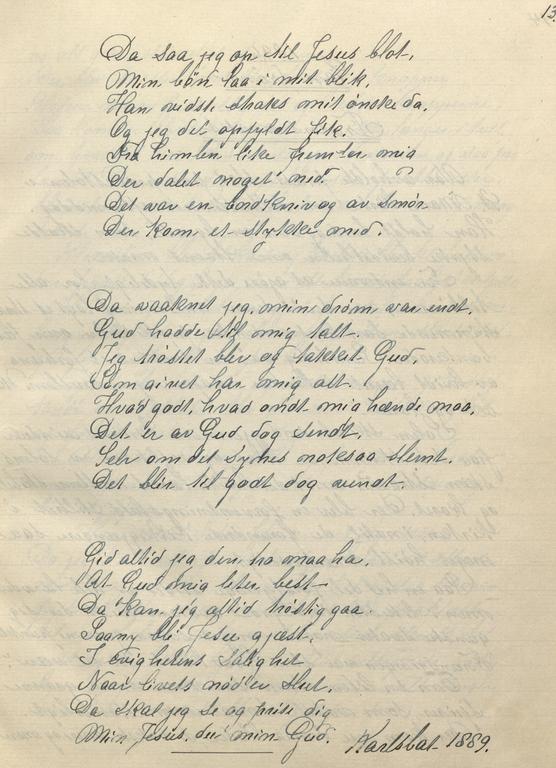 13.
Da saa jeg op til Jesus blot,
Min bön laa i mit blik,
Han vidst straks mit önske da,
Og jeg det opfyldt fik.
Fra himlen like frem for mig
Der dalet noget ned?
Det var en bordkniv og av smör
Der kom et stykke med.
Da vaaknet jeg, min dröm var endt.
Gud hadde til mig talt.
Jeg tröstet blev og takket Gud,
Som givet har mig alt
Hvad godt, hvad ondt mig hænde maa,
Det er av Gud dog sendt,
Selv om det synes noksaa slemt.
Det blir til godt dog vendt.
Gid altid jeg den tro maa ha,
At Gud mig leter best
Da kan jeg altid tröstig gaa
Paany bli Jesu gjæst,
I evighetens salighet
Naar livets nöd er slut,
Da skal jeg se og prise dig
Min Jesus, du min Gud.
Karlsbat 1889.